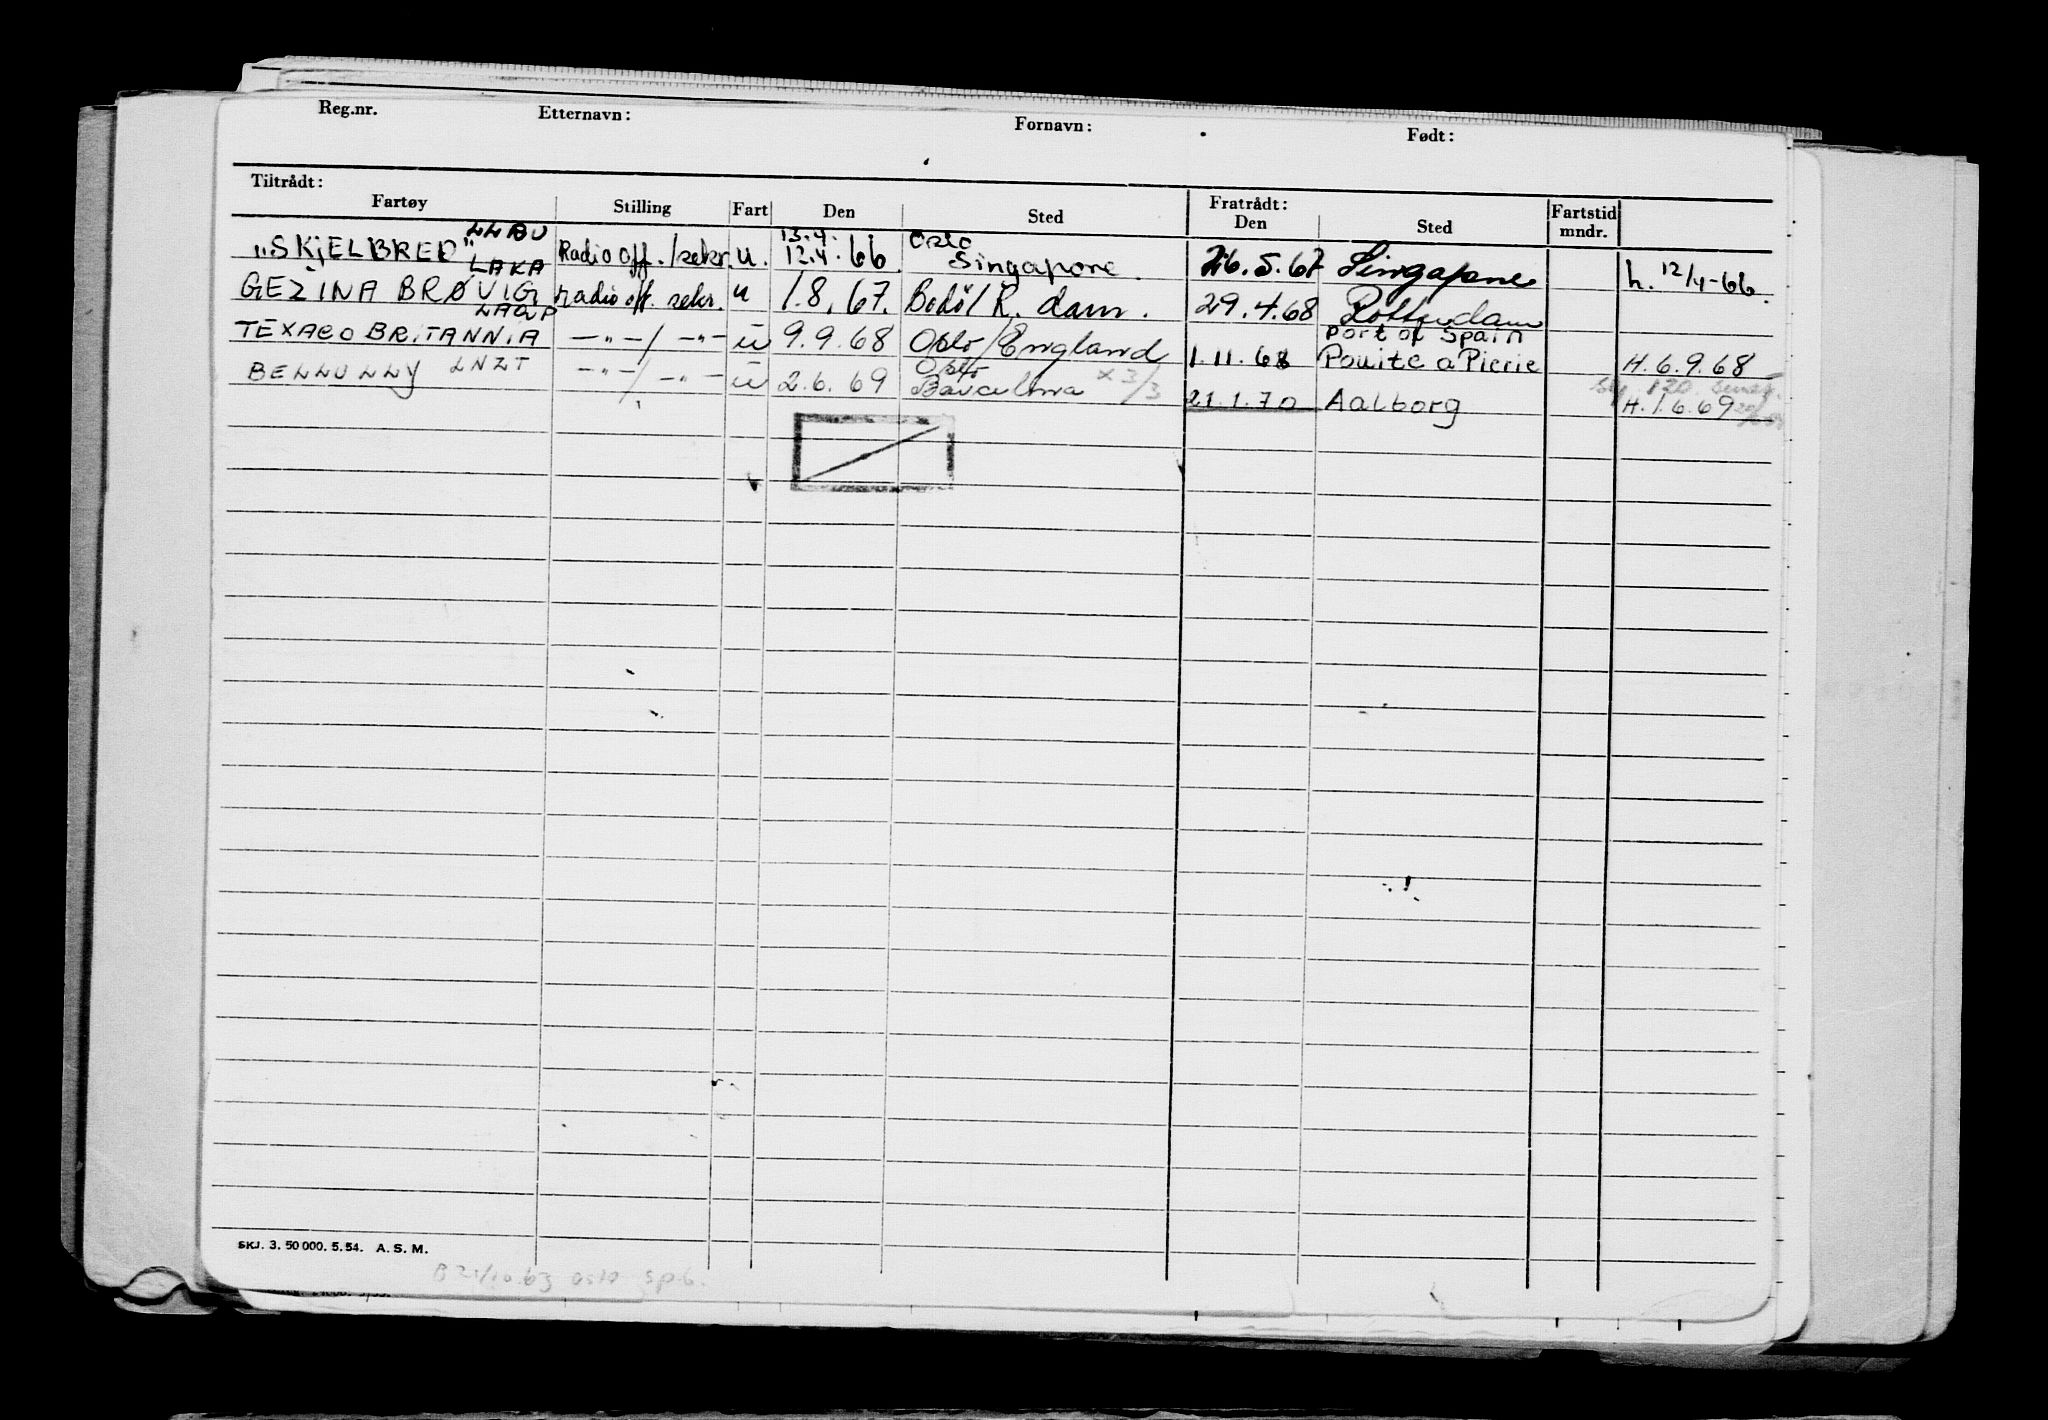 Reg.nr. Etternavn: Fornavn: Født:
Tiltrådt: Fratrådt:
Fartøy Stilling Fart Den Sted Den Sted Fartstid mndr.
LLBU 13.4. Oslo
„SKJELBRED" Radio off./sekr. u. 12.4.66. Singapore. 26.5.67 Singapore h. 12/4-66.
LAKA
GEZINA BRØVIG radio off. sekr. u 1.8.67. Bodø/R.dam. 29.4.68 Rotterdam
LAQP Port of Spain
TEXACO BRITANNIA —"—/—"— u 9.9.68 Oslo/England 1.11.68 Pouite a Pierie H.6.9.68
Oslo
BELLULLY LNZT —"—/—"— u 2.6.69 x 3/3 21.1.70 Aalborg H.1.6.69
SKJ. 3. 50 000. 5. 54. A. S. M.
B 21/10.63 Oslo sp.6.